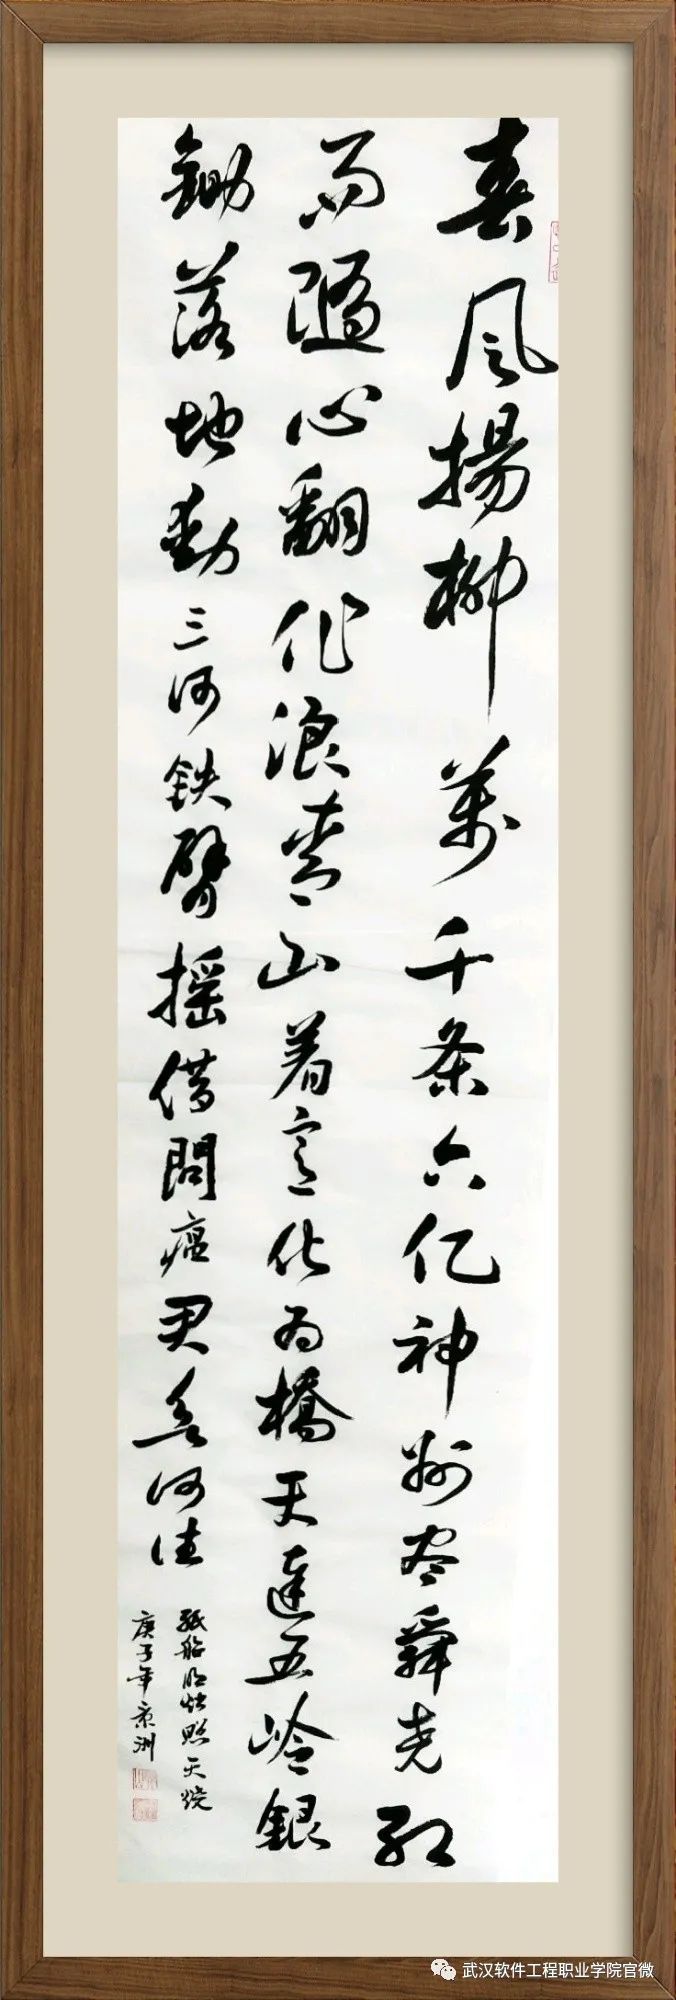 春风揚柳萬千条六亿神州尽舜尧红
雨随心翻作浪青山着意化为橋天连五岭銀
鋤落地動三河铁臂摇借問瘟君欲何往
纸船明烛照天烧
庚子年京洲
武汉软件工程职业学院官微